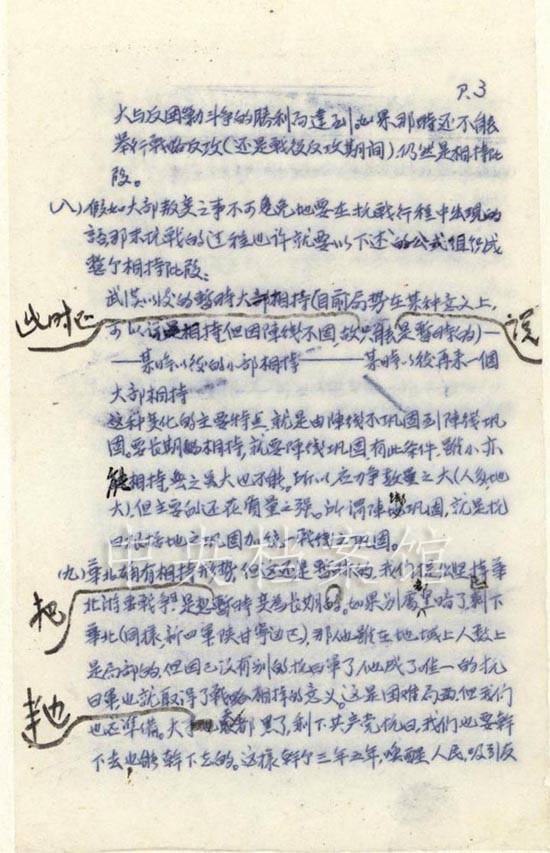 P.3
大与反国勢斗争的勝利而達到。如果那時还不能
举行戰略反攻(还是戰役反攻期間)仍然是相持阶
段。
(八)假如大部叛变之事不可避免地要在抗戰行程中出現的
話那末抗戰的过程也许就要以下述的公式组织成
整个相持阶段:
武漢以後的暫時大部相持(目前局勢在某种意义上,
此时还
可以说是相持但因陣线不固故只能是暫時的)—
误
—某時以後的小部相持——某時以後再来一個
大部相持
这种变化的主要特点,就是由陣线不巩固到陣线巩
固。要長期的相持,就要陣线巩固,有此条件,雖小亦
能相持,無之虽大也不能。所以应力争数量之大(人多地
大)但主要的还在质量之强。所谓陣线巩固,就是抗
日根据地之巩固加统一戰线之巩固。
中央档案馆
(九)華北頗有相持形势,但这还是暫時的,我们坚持華
北游击戰争,是把暫時变为長期的。如果别處黑暗了剩下
把
華北(同樣,新四軍陕甘宁边区),那他雖在地域上人数上
是局部的,但因已没有别的抗日軍了他成了唯一的抗
日軍也就取得了戰略相持的意义。这是困难局面,但我们
也
也要準備。大部黑了,剩下共产党抗日,我们也要幹
下去也能幹下去的。这樣幹个三年五年,喚醒人民,吸引友